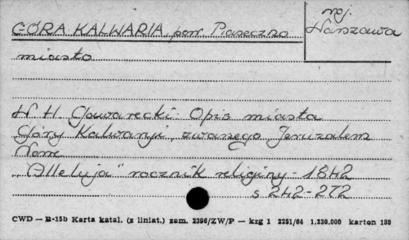 GÓRA KALWARIA, pow. Piaseczno
woj. Warszawa
miasto
W. H. Gawarecki: Opis miasta
Góry Kalwaryi, zwanego Jeruzalem
Nowe
"Alleluja" rocznik religijny - 1842
s 242-272
CWD — B-15b Karta katal. (z liniat.) zam. 2396/ZW/P — kzg 1 2251/64 1.230.000 karton 180